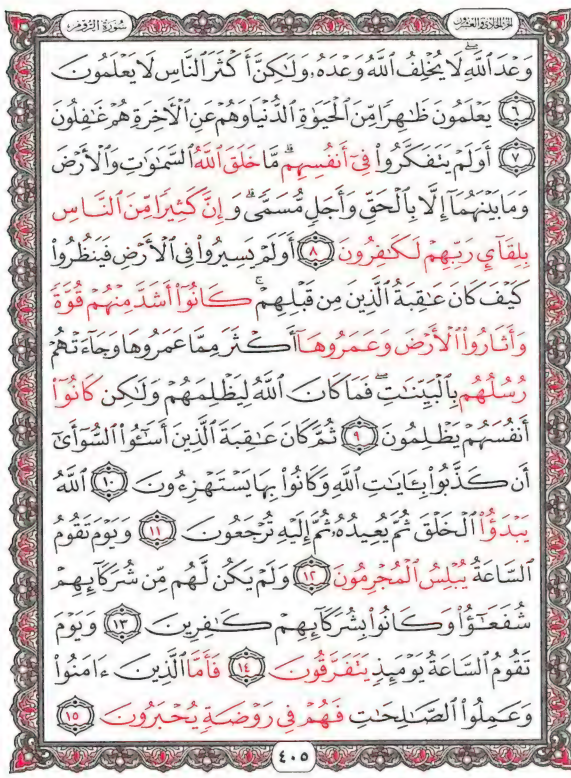 الجزء الحادي والعشرون
سورة الروم
وَعْدَ ٱللَّهِۖ لَا يُخْلِفُ ٱللَّهُ وَعْدَهُۥ وَلَٰكِنَّ أَكْثَرَ ٱلنَّاسِ لَا يَعْلَمُونَ
٦ يَعْلَمُونَ ظَٰهِرًا مِّنَ ٱلْحَيَوٰةِ ٱلدُّنْيَا وَهُمْ عَنِ ٱلْأَخِرَةِ هُمْ غَٰفِلُونَ
٧ أَوَلَمْ يَتَفَكَّرُوا۟ فِىٓ أَنفُسِهِمۗ مَّا خَلَقَ ٱللَّهُ ٱلسَّمَٰوَٰتِ وَٱلْأَرْضَ
وَمَا بَيْنَهُمَآ إِلَّا بِٱلْحَقِّ وَأَجَلٍ مُّسَمًّىۗ وَإِنَّ كَثِيرًا مِّنَ ٱلنَّاسِ
بِلِقَآئِ رَبِّهِمْ لَكَٰفِرُونَ ٨ أَوَلَمْ يَسِيرُوا۟ فِى ٱلْأَرْضِ فَيَنظُرُوا۟
كَيْفَ كَانَ عَٰقِبَةُ ٱلَّذِينَ مِن قَبْلِهِمْۚ كَانُوٓا۟ أَشَدَّ مِنْهُمْ قُوَّةً
وَأَثَارُوا۟ ٱلْأَرْضَ وَعَمَرُوهَآ أَكْثَرَ مِمَّا عَمَرُوهَا وَجَآءَتْهُمْ
رُسُلُهُم بِٱلْبَيِّنَٰتِۖ فَمَا كَانَ ٱللَّهُ لِيَظْلِمَهُمْ وَلَٰكِن كَانُوٓا۟
أَنفُسَهُمْ يَظْلِمُونَ ٩ ثُمَّ كَانَ عَٰقِبَةَ ٱلَّذِينَ أَسَٰٓـُٔوا۟ ٱلسُّوٓأَىٰٓ
أَن كَذَّبُوا۟ بِـَٔايَٰتِ ٱللَّهِ وَكَانُوا۟ بِهَا يَسْتَهْزِءُونَ ١٠ ٱللَّهُ
يَبْدَؤُا۟ ٱلْخَلْقَ ثُمَّ يُعِيدُهُۥ ثُمَّ إِلَيْهِ تُرْجَعُونَ ١١ وَيَوْمَ تَقُومُ
ٱلسَّاعَةُ يُبْلِسُ ٱلْمُجْرِمُونَ ١٢ وَلَمْ يَكُن لَّهُم مِّن شُرَكَآئِهِمْ
شُفَعَٰٓؤُا۟ وَكَانُوا۟ بِشُرَكَآئِهِمْ كَٰفِرِينَ ١٣ وَيَوْمَ
تَقُومُ ٱلسَّاعَةُ يَوْمَئِذٍ يَتَفَرَّقُونَ ١٤ فَأَمَّا ٱلَّذِينَ ءَامَنُوا۟
وَعَمِلُوا۟ ٱلصَّٰلِحَٰتِ فَهُمْ فِى رَوْضَةٍ يُحْبَرُونَ ١٥
٤٠٥